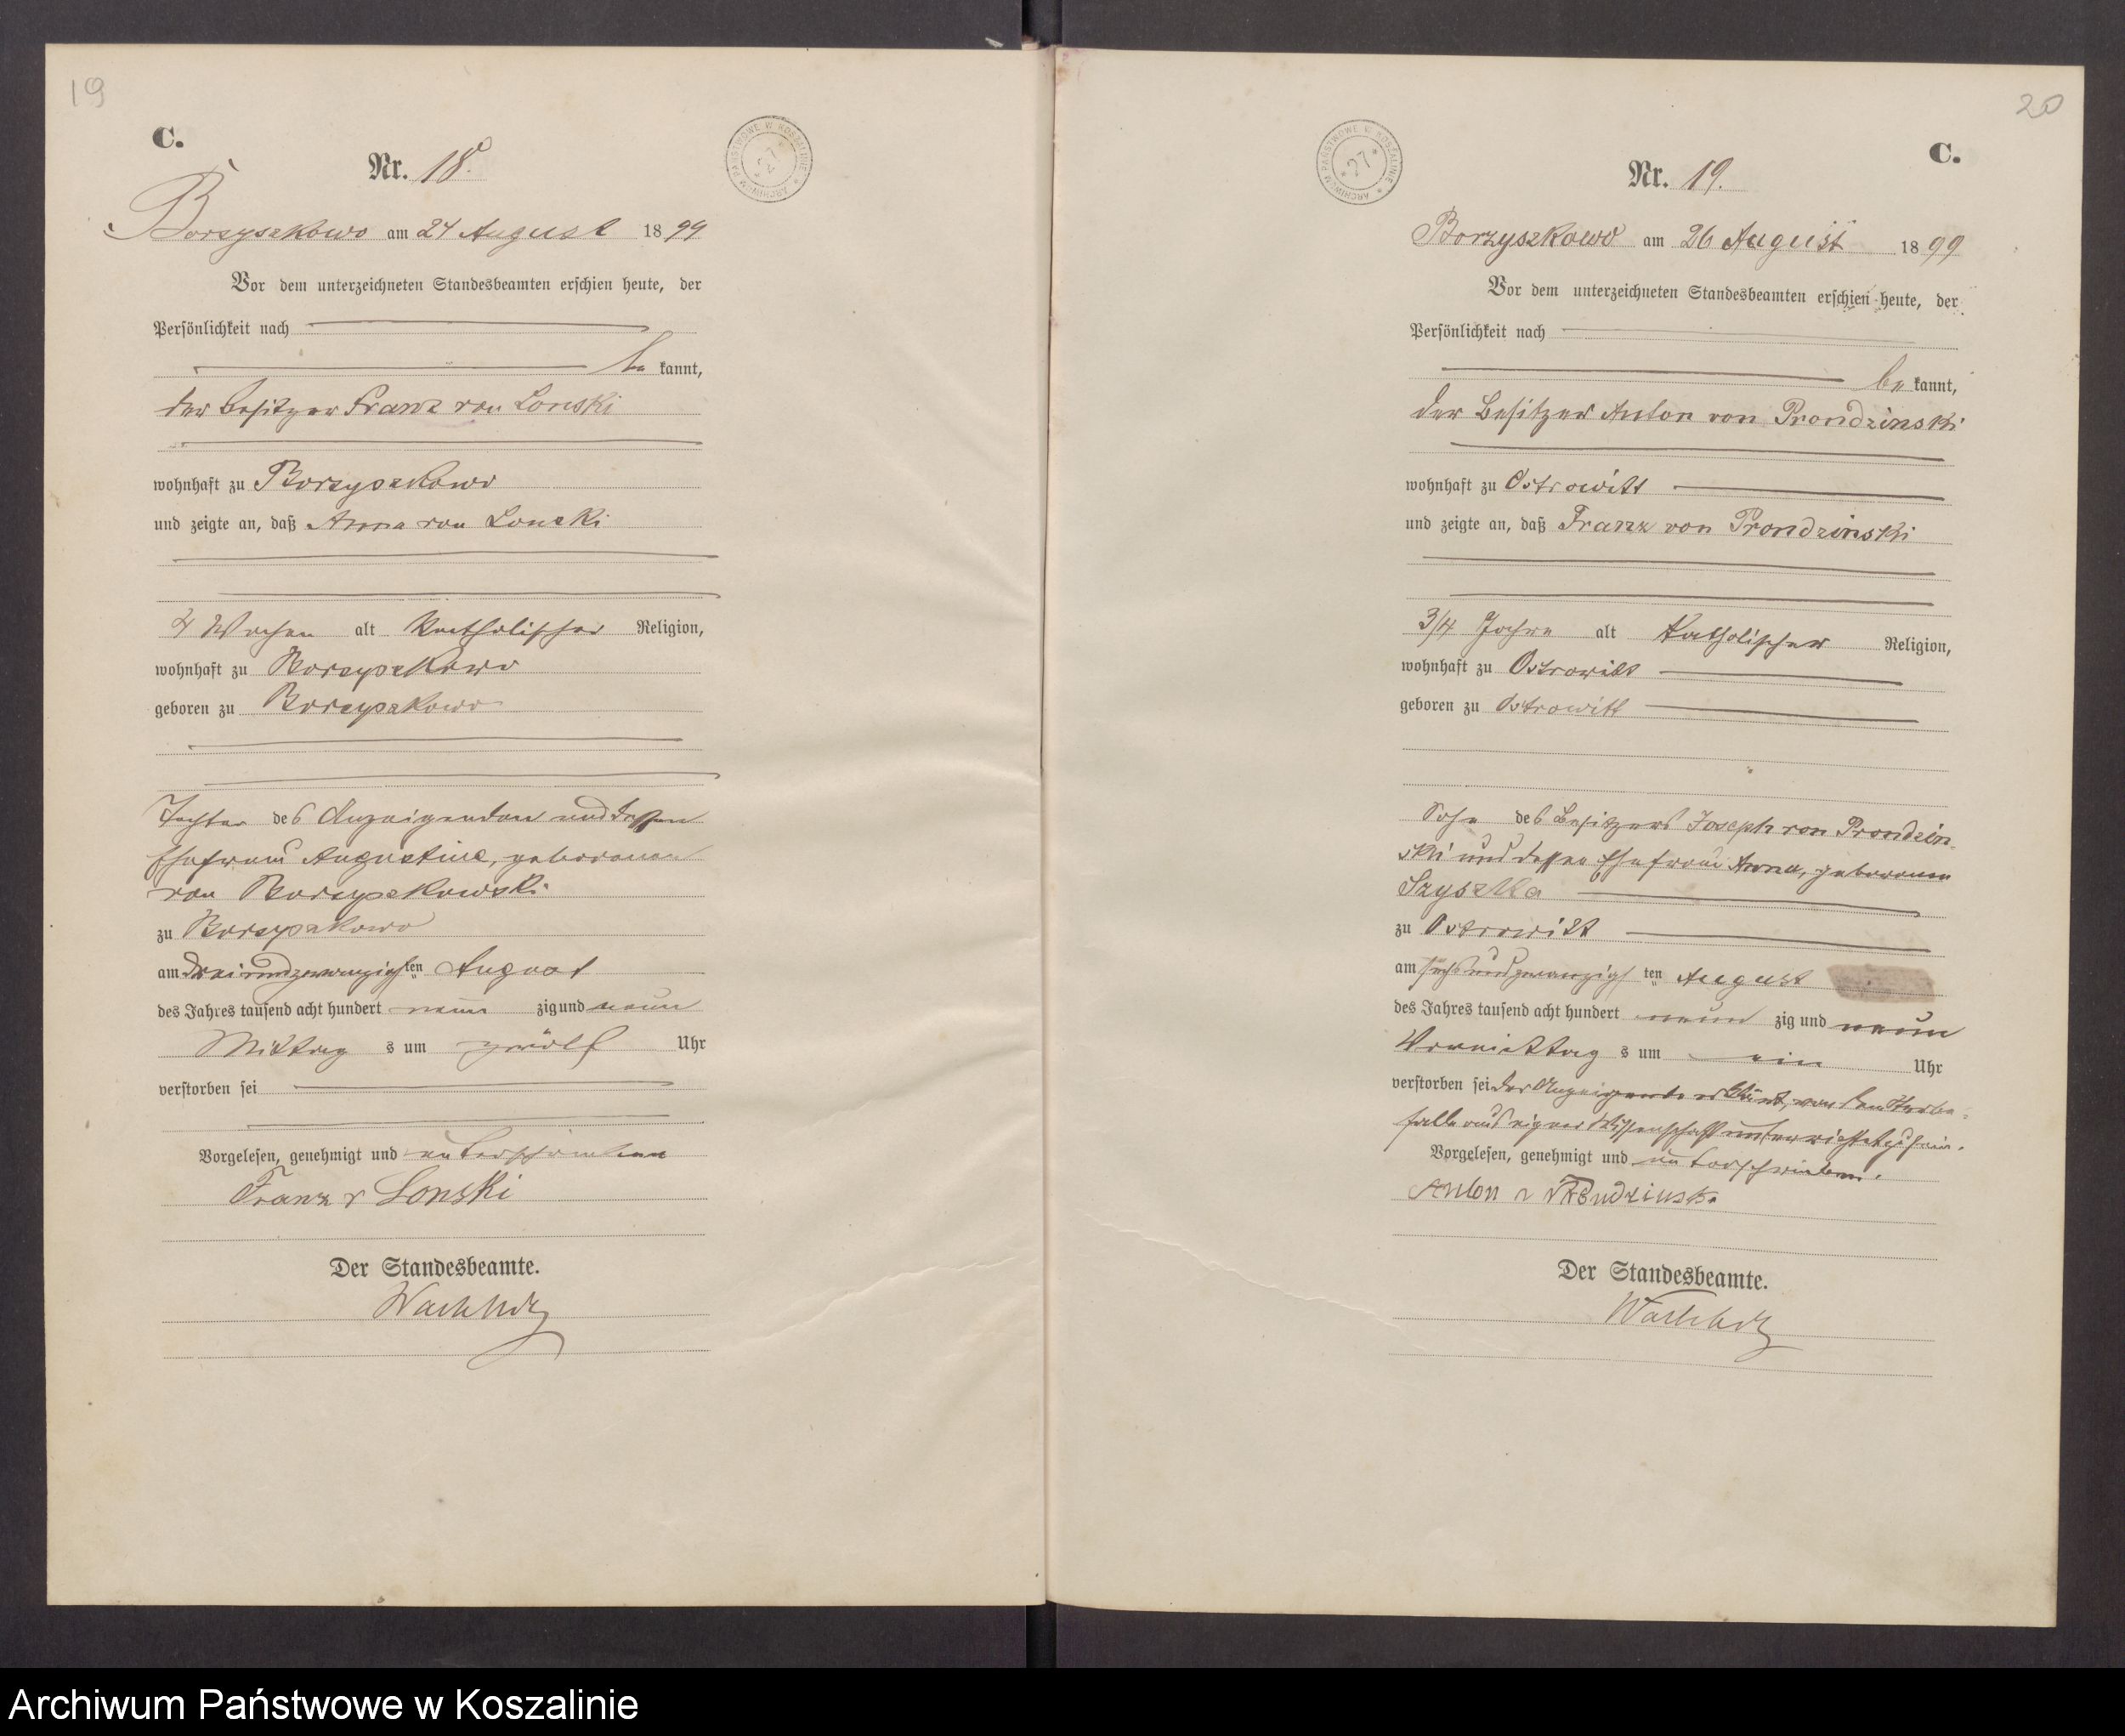 19
C.
Nr. 18.
ARCHIWUM PAŃSTWOWE W KOSZALINIE * 27 *
Borzyszkowo am 24 August 1899
Vor dem unterzeichneten Standesbeamten erschien heute, der
Persönlichkeit nach
be kannt,
der Besitzer Franz von Lonski
wohnhaft zu Borzyszkowo
und zeigte an, daß Anna von Lonski
4 Wochen alt katholischer Religion,
wohnhaft zu Borzyszkowo
geboren zu Borzyszkowo
Tochter des Anzeigenden und dessen
Ehefrau Augustine, geborenen
von Borzyszkowski
zu Borzyszkowo
am dreiundzwanzigsten August
des Jahres tausend acht hundert neun zig und neun
Mittag s um zwölf Uhr
verstorben sei
Vorgelesen, genehmigt und unterschrieben
Franz v Lonski
Der Standesbeamte.
20
C.
Nr. 19.
ARCHIWUM PAŃSTWOWE W KOSZALINIE * 27 *
Borzyszkowo am 26 August 1899
Vor dem unterzeichneten Standesbeamten erschien heute, der
Persönlichkeit nach
be kannt,
der Besitzer Anton von Prondzinski
wohnhaft zu Ostrowitt
und zeigte an, daß Franz von Prondzinski
3/4 Jahre alt katholischer Religion,
wohnhaft zu Ostrowitt
geboren zu Ostrowitt
Sohn des Besitzers Joseph von Prondzin-
ski und dessen Ehefrau Anna, geborenen
Szyszka
zu Ostrowitt
am sechsundzwanzigsten August
des Jahres tausend acht hundert neun zig und neun
Vormittag s um ein Uhr
verstorben sei der Anzeigende erklärt, von dem Sterbe-
falle aus eigner Wissenschaft unterrichtet zu sein.
Vorgelesen, genehmigt und unterschrieben.
Anton v Prondzinski
Der Standesbeamte.
Archiwum Państwowe w Koszalinie